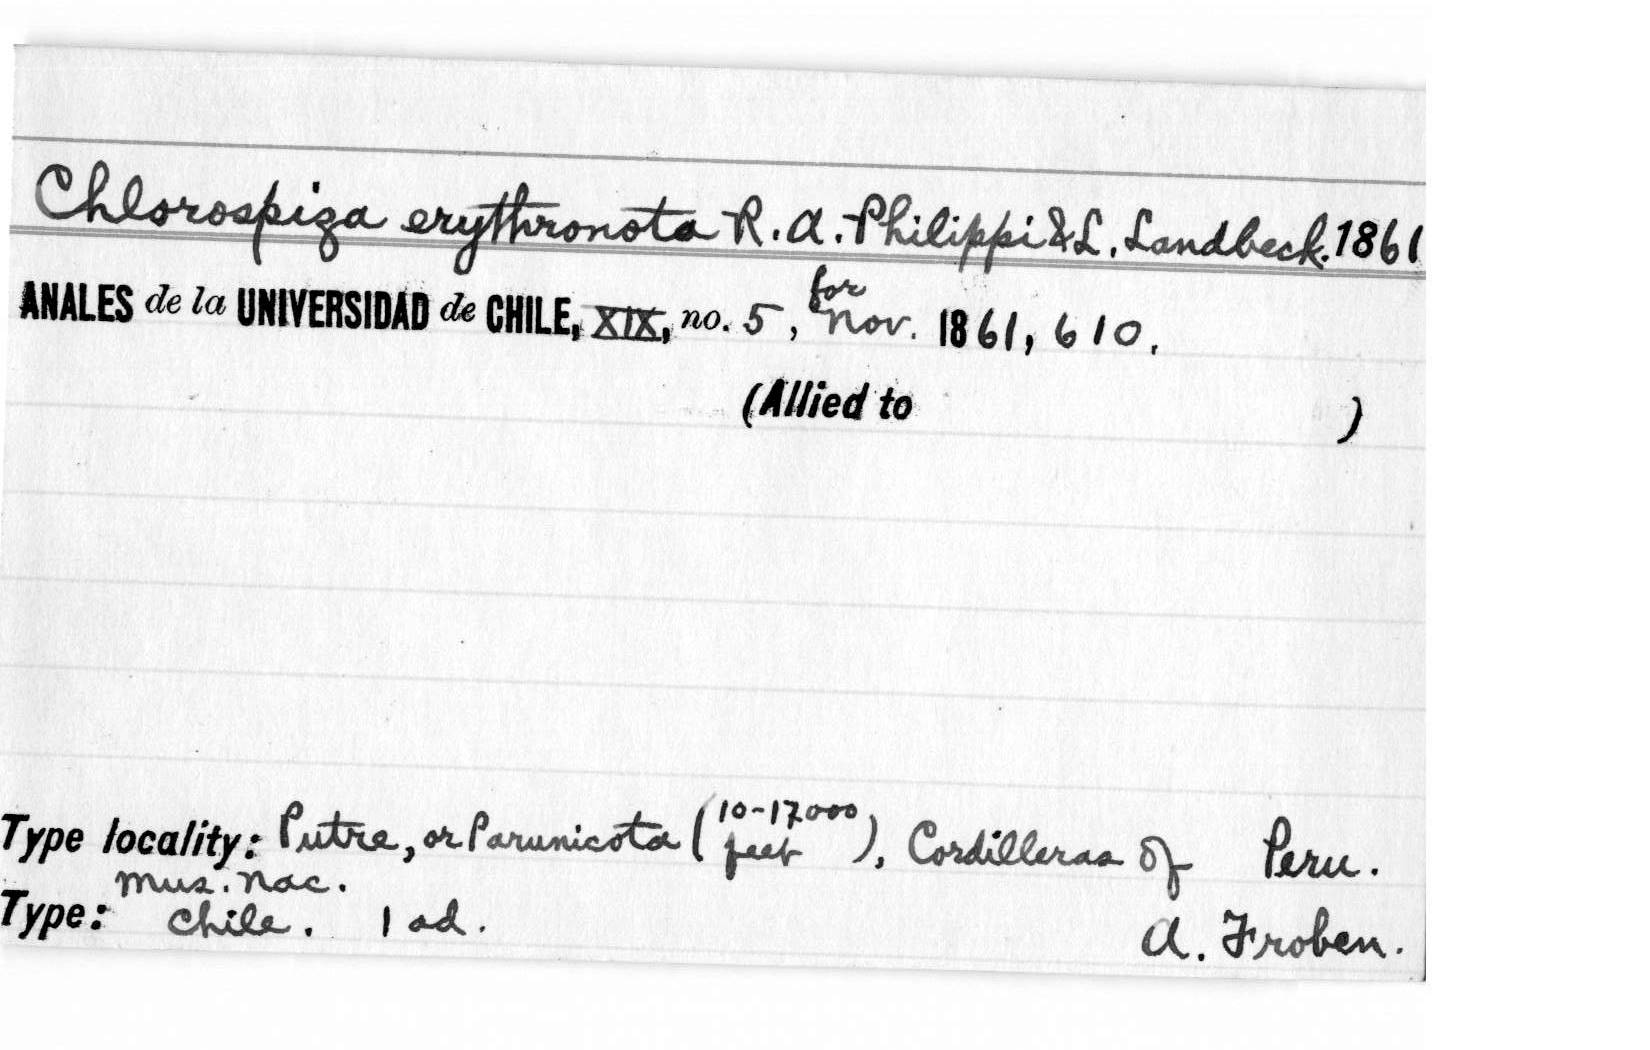 Chlorospiza erythronota R. A. Philippi & L. Landbeck. 1861
ANALES de la UNIVERSIDAD de CHILE, XIX, no. 5, for Nov. 1861, 610.
(Allied to )
Type locality: Putre, or Parunicota (10-17000 feet), Cordilleras of Peru.
Mus. Nac.
Type: Chile. 1 ad. A. Froben.